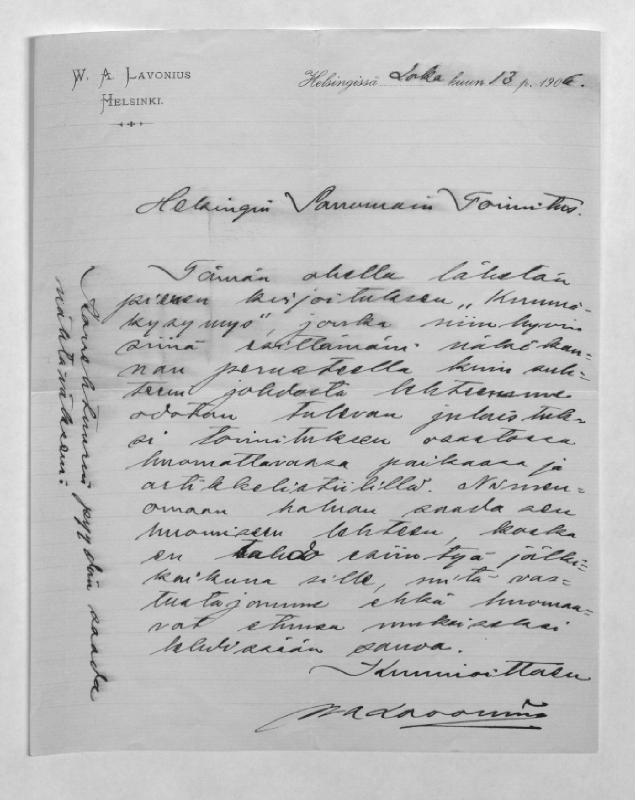 W. A. LAVONIUS
HELSINKI.
Helsingissä Loka kuun 13 p. 1906.
Helsingin Sanomain Toimitus.
Tämän ohella lähetän
pienen kirjoituksen „Kunnal-
kysymys”, jonka niin hyvin
siinä esittämäni näkökan-
nan perusteella kuin suh-
teeni johdosta lehteemme
odotan tulevan julaistuk-
si toimituksen osastossa
huomattavassa paikassa ja
artikkelistiilillä. Nimen-
omaan haluan saada sen
huomiseen lehteen, koska
en tahdo esiintyä jälki-
kaikuna sille, mitä vas-
tustajamme ehkä huomaa-
vat etunsa mukaiseksi
lehdissään sanoa.
Kunnioittaen
WALavonius
Korrehtuurin pyydän saada
nähtäväkseni.